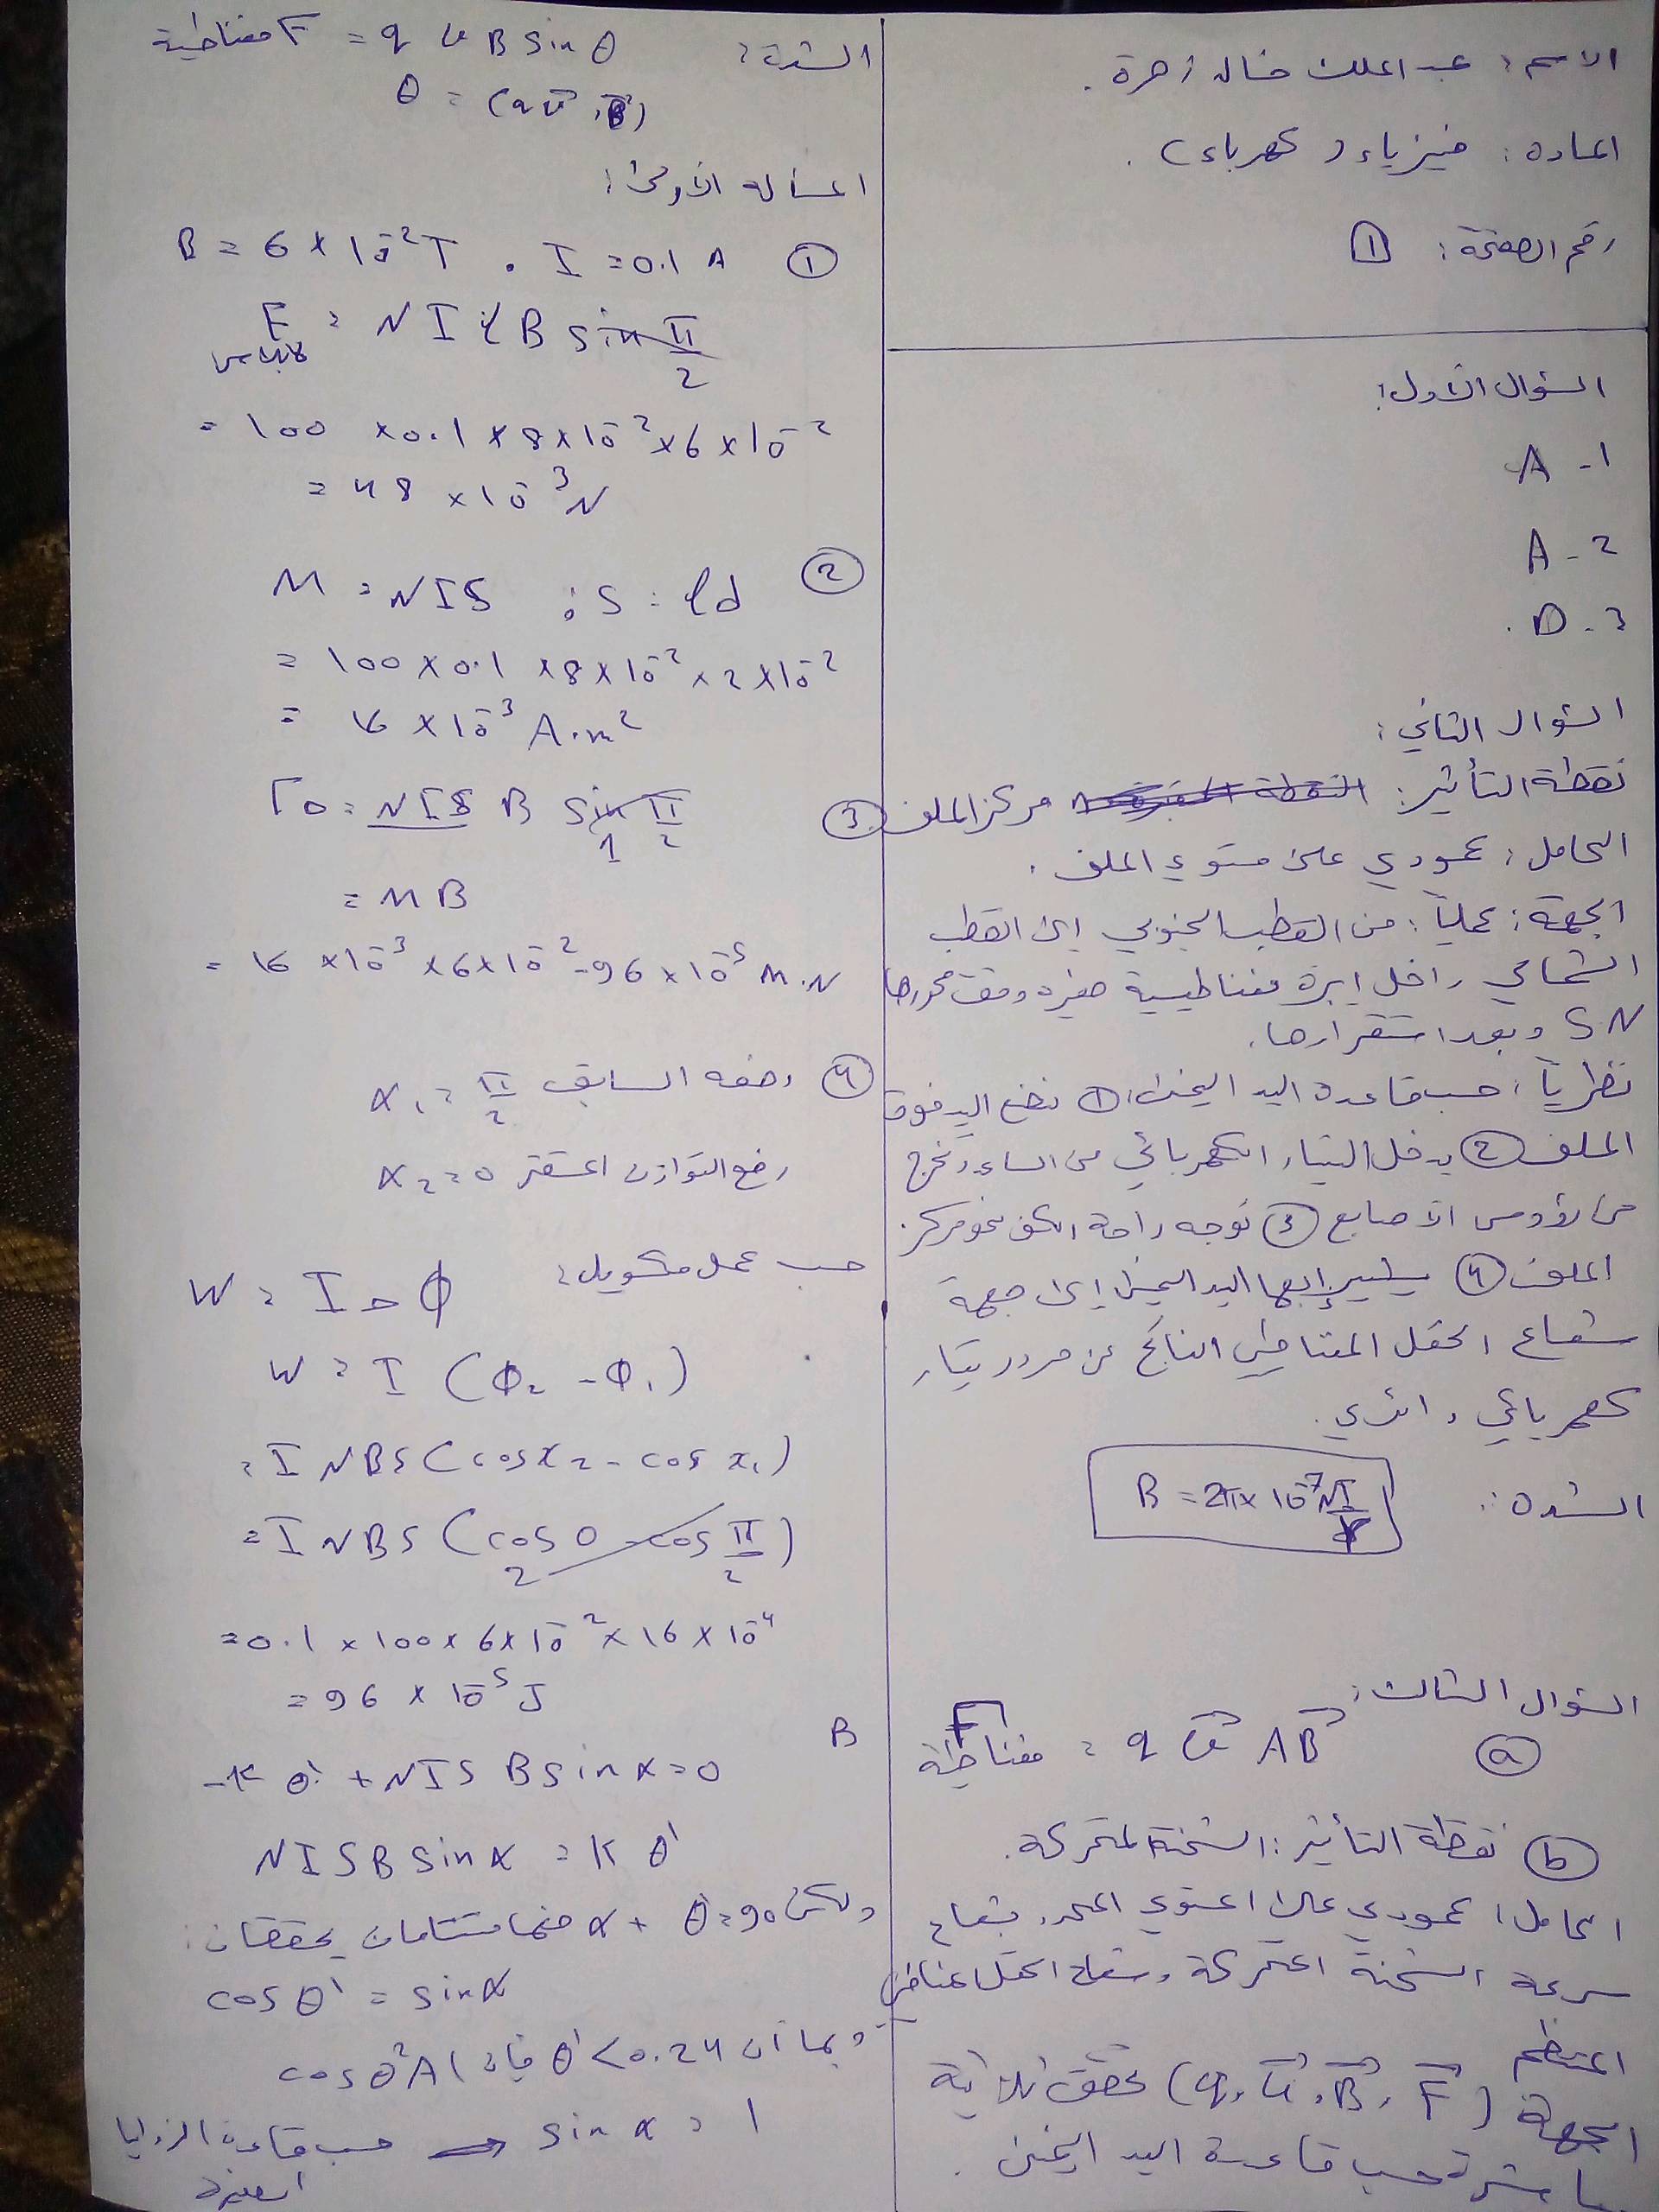 الاسم: عبد الملك خالد زهرة.
المادة: فيزياء (كهرباء).
رقم الصفحة: ①
السؤال الأول:
1- A
2- A
3- D.
السؤال الثاني:
نقطة التأثير: مركز الملف
الحامل: عمودي على مستوي الملف.
الجهة: عملياً: من القطب الجنوبي إلى القطب
الشمالي داخل إبرة مغناطيسية صغيرة وفق محورها
SN وبعد استقرارها.
نظرياً: حسب قاعدة اليد اليمنى: ① نضع اليد فوق
الملف ② يدخل التيار الكهربائي من الساعد ويخرج
من رؤوس الأصابع ③ نوجه راحة الكف نحو مركز.
الملف ④ يشير إبهام اليد اليمنى إلى جهة
شعاع الحقل المغناطيسي الناتج عن مرور تيار
كهربائي دائري.
الشدة: B = 2π×10⁻⁷ NI/r
السؤال الثالث:
ⓐ F⃗ مغناطيسية = q v⃗ Λ B⃗
ⓑ نقطة التأثير: الشحنة المتحركة.
الحامل: عمودي على المستوي المحدد بشعاع
سرعة الشحنة المتحركة وشعاع الحقل المغناطيسي
المنتظم
الجهة (q v⃗, B⃗, F⃗) تحقق ثلاثية
مباشرة حسب قاعدة اليد اليمنى.
الشدة: F مغناطيسية = q v B sin θ
θ = (q v⃗, B⃗)
المسألة الأولى:
① B = 6 × 10⁻² T . I = 0.1 A
F لابلاس = N I ℓ B sin π/2
= 100 × 0.1 × 8 × 10⁻² × 6 × 10⁻²
= 48 × 10⁻³ N
② M = NIS ; S = ℓd
= 100 × 0.1 × 8 × 10⁻² × 2 × 10⁻²
= 16 × 10⁻³ A.m²
③ Γ₀ = NIS B sin π/2 1
= MB
= 16 × 10⁻³ × 6 × 10⁻² = 96 × 10⁻⁵ m.N
④ وضعه السابق α₁ = π/2
وضع التوازن المستقر α₂ = 0
حسب عمل مكسويل: W = I Δ Φ
W = I (Φ₂ - Φ₁)
= I NBS (cos α₂ - cos α₁)
= I NBS (cos 0 - cos π/2)
= 0.1 × 100 × 6 × 10⁻² × 16 × 10⁻⁴
= 96 × 10⁻⁵ J
B
-k θ' + NIS B sin α = 0
NISB sin α = k θ'
ولكن α + θ' = 90 فهما متتامان يحققان:
cos θ' = sin α
وبما أن θ' < 0.24 فإن
sin α = 1 ← حسب قاعدة الزوايا
الصغيرة